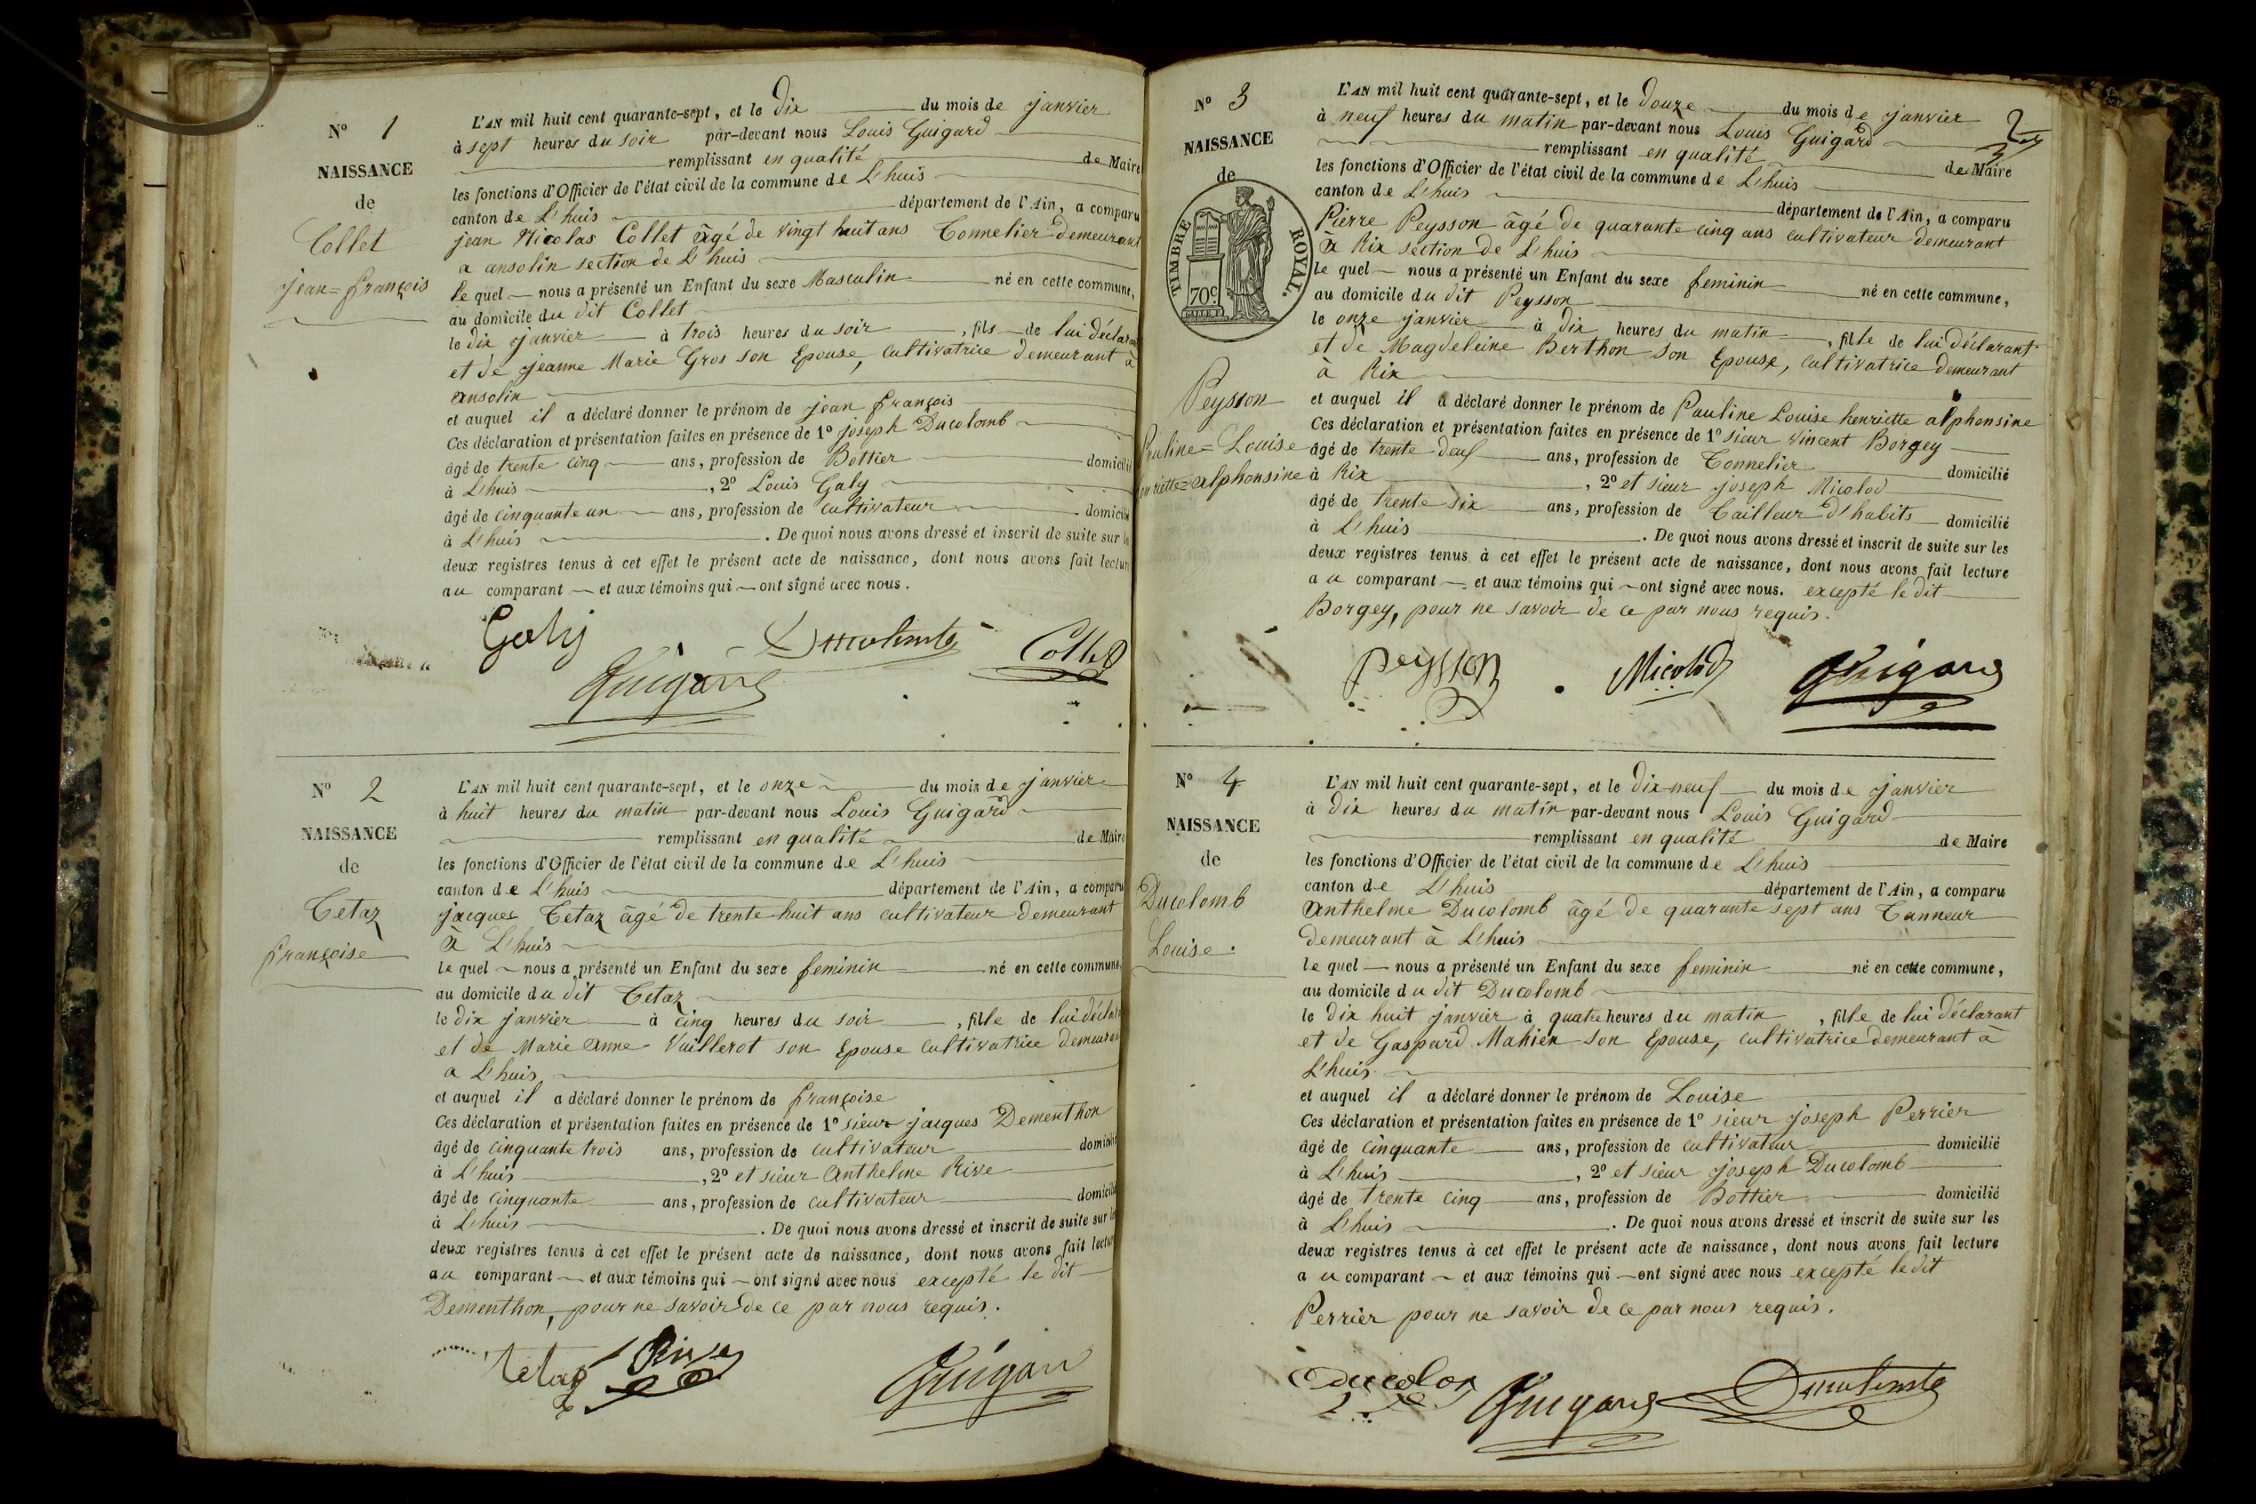 N° 1
NAISSANCE
de
Collet
jean=françois
L'AN mil huit cent quarante-sept, et le Dix du mois de janvier
à sept heures du soir par-devant nous Louis Guigard
remplissant en qualité de Maire
les fonctions d'Officier de l'état civil de la commune de L'huis
canton de L'huis département de l'Ain, a comparu
jean Nicolas Collet âgé de vingt huit ans Tonnelier demeurant
a ansolin section de L'huis
le quel nous a présenté un Enfant du sexe Masculin né en cette commune,
au domicile du dit Collet
le dix janvier à trois heures du soir, fils de lui déclarant
et de jeanne Marie Gros son Epouse, cultivatrice demeurant à
ansolin
et auquel il a déclaré donner le prénom de jean françois
Ces déclaration et présentation faites en présence de 1° joseph Ducolomb
âgé de trente cinq ans, profession de Bottier domicilié
à L'huis, 2° Louis Galy
âgé de cinquante un ans, profession de cultivateur domicilié
à L'huis. De quoi nous avons dressé et inscrit de suite sur les
deux registres tenus à cet effet le présent acte de naissance, dont nous avons fait lecture
au comparant et aux témoins qui ont signé avec nous.
Galy Collet
Guigard
N° 2
NAISSANCE
de
Tetaz
françoise
L'AN mil huit cent quarante-sept, et le onze du mois de janvier
à huit heures du matin par-devant nous Louis Guigard
remplissant en qualité de Maire
les fonctions d'Officier de l'état civil de la commune de L'huis
canton de L'huis département de l'Ain, a comparu
jacques Tetaz âgé de trente huit ans cultivateur demeurant
à L'huis
le quel nous a présenté un Enfant du sexe feminin né en cette commune,
au domicile du dit Tetaz
le dix janvier à cinq heures du soir, fille de lui déclarant
et de Marie anne Vuillerot son Epouse cultivatrice demeurant
a L'huis
et auquel il a déclaré donner le prénom de françoise
Ces déclaration et présentation faites en présence de 1° sieur jacques Dementhon
âgé de cinquante trois ans, profession de cultivateur domicilié
à L'huis, 2° et sieur Anthelme Rive
âgé de cinquante ans, profession de cultivateur domicilié
à L'huis. De quoi nous avons dressé et inscrit de suite sur les
deux registres tenus à cet effet le présent acte de naissance, dont nous avons fait lecture
au comparant et aux témoins qui ont signé avec nous excepté le dit
Dementhon, pour ne savoir de ce par nous requis.
Tetaz Rive Guigard
N° 3
NAISSANCE
de
TIMBRE ROYAL.
70c
Peysson
Pauline=Louise
henriette=alphonsine
2
L'AN mil huit cent quarante-sept, et le douze du mois de janvier
à neuf heures du matin par-devant nous Louis Guigard
remplissant en qualité de Maire
les fonctions d'Officier de l'état civil de la commune de L'huis
canton de L'huis département de l'Ain, a comparu
Pierre Peysson âgé de quarante cinq ans cultivateur demeurant
à Rix section de L'huis
le quel nous a présenté un Enfant du sexe feminin né en cette commune,
au domicile du dit Peysson
le onze janvier à dix heures du matin, fille de lui déclarant
et de Magdeleine Berthon son Epouse, cultivatrice demeurant
à Rix
et auquel il a déclaré donner le prénom de Pauline Louise henriette alphonsine
Ces déclaration et présentation faites en présence de 1° sieur Vincent Borgey
âgé de trente deux ans, profession de Tonnelier domicilié
à Rix, 2° et sieur joseph Micolod
âgé de trente six ans, profession de Tailleur d'habits domicilié
à L'huis. De quoi nous avons dressé et inscrit de suite sur les
deux registres tenus à cet effet le présent acte de naissance, dont nous avons fait lecture
au comparant et aux témoins qui ont signé avec nous. excepté le dit
Borgey, pour ne savoir de ce par nous requis.
peysson Micolod Guigard
N° 4
NAISSANCE
de
Ducolomb
Louise.
L'AN mil huit cent quarante-sept, et le dix-neuf du mois de janvier
à dix heures du matin par-devant nous Louis Guigard
remplissant en qualité de Maire
les fonctions d'Officier de l'état civil de la commune de L'huis
canton de L'huis département de l'Ain, a comparu
Anthelme Ducolomb âgé de quarante sept ans Tanneur
demeurant à L'huis
le quel nous a présenté un Enfant du sexe feminin né en cette commune,
au domicile du dit Ducolomb
le dix huit janvier à quatre heures du matin, fille de lui déclarant
et de Gaspard Mahien son Epouse, cultivatrice demeurant à
L'huis
et auquel il a déclaré donner le prénom de Louise
Ces déclaration et présentation faites en présence de 1° sieur joseph Perrier
âgé de cinquante ans, profession de cultivateur domicilié
à L'huis, 2° et sieur joseph Ducolomb
âgé de trente cinq ans, profession de Bottier domicilié
à L'huis. De quoi nous avons dressé et inscrit de suite sur les
deux registres tenus à cet effet le présent acte de naissance, dont nous avons fait lecture
au comparant et aux témoins qui ont signé avec nous excepté le dit
Perrier pour ne savoir de ce par nous requis.
Guigard